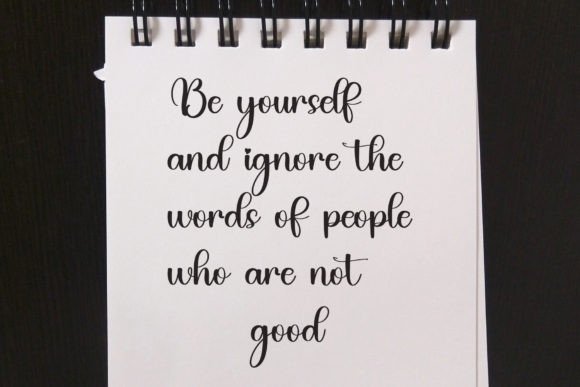 Be yourself
and ignore the
words of people
who are not
good